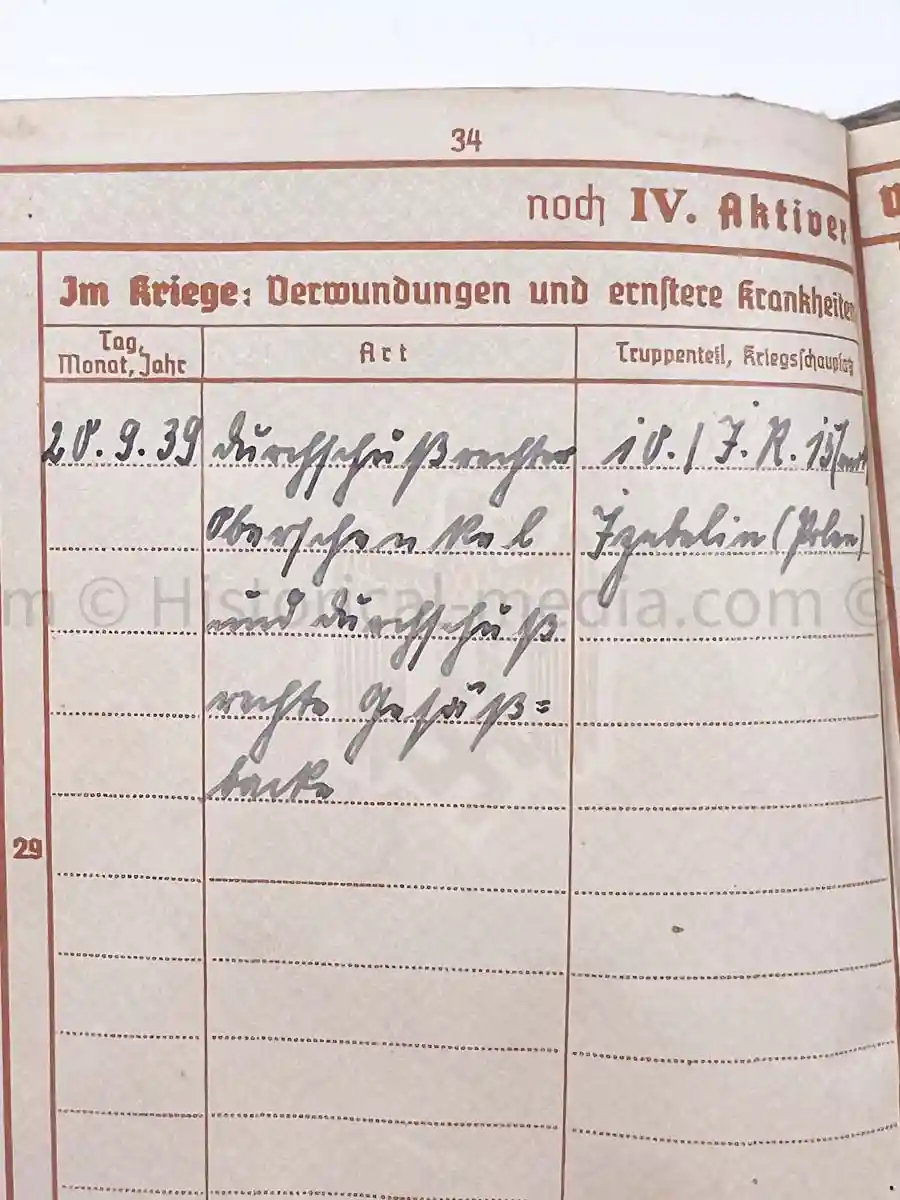 34
noch IV. Aktiver
Im Kriege: Verwundungen und ernstere Krankheiten
Tag, Monat, Jahr Art Truppenteil, Kriegsschauplatz
20.9.39 Durchschuß rechter 10./J.R. 15/mot
Oberschenkel Jzabelin (Polen)
m © Historical-media.com ©
und Durchschuß
rechte Gesäß=
backe
29